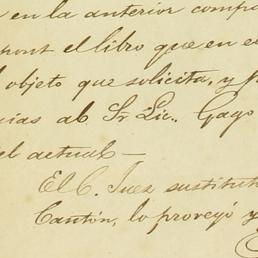 en la anterior compa
pont el libro que en e
objeto que solicita, y p
cias al Sr Lic., Gago
el actual—
El C. Juez sustitut
Cantón, lo proveyó y